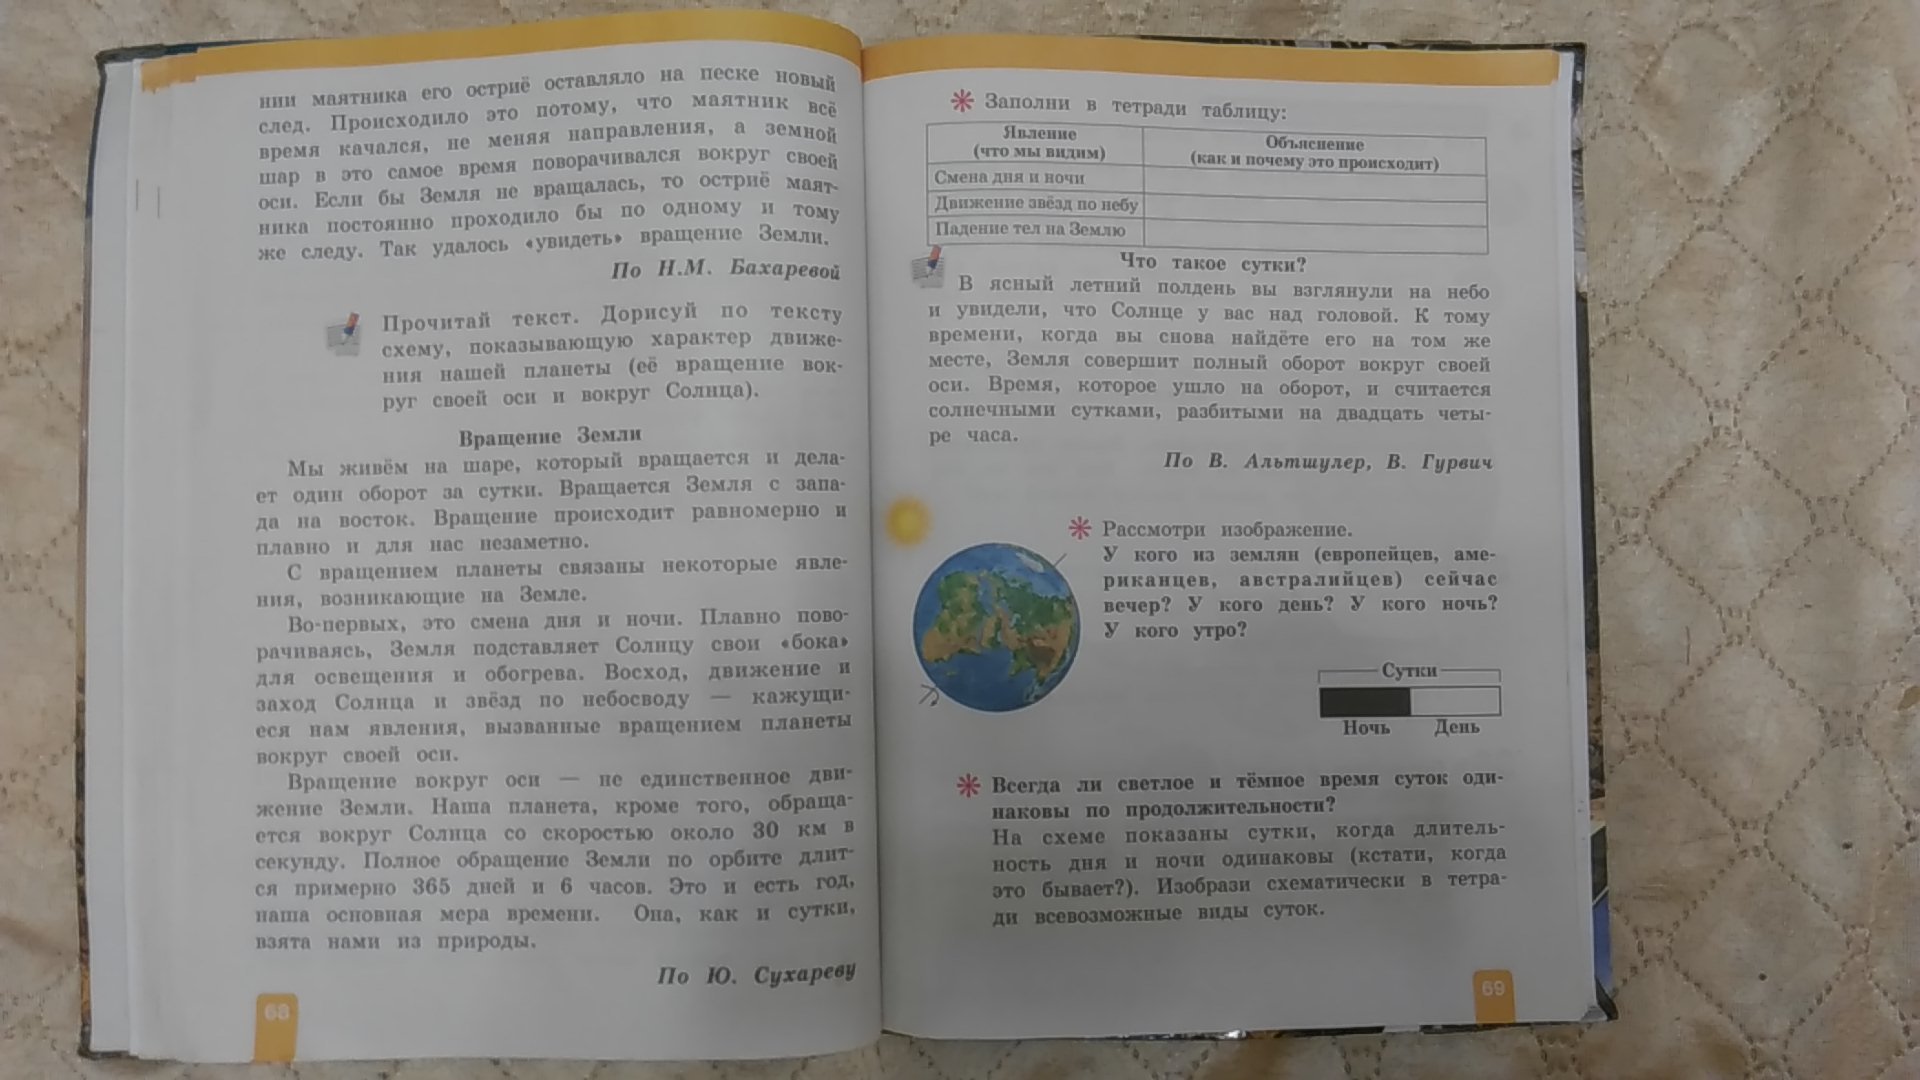 нии маятника его остриё оставляло на песке новый
след. Происходило это потому, что маятник всё
время качался, не меняя направления, а земной
шар в это самое время поворачивался вокруг своей
оси. Если бы Земля не вращалась, то остриё маят-
ника постоянно проходило бы по одному и тому
же следу. Так удалось «увидеть» вращение Земли.
По Н.М. Бахаревой
Прочитай текст. Дорисуй по тексту
схему, показывающую характер движе-
ния нашей планеты (её вращение вок-
руг своей оси и вокруг Солнца).
Вращение Земли
Мы живём на шаре, который вращается и дела-
ет один оборот за сутки. Вращается Земля с запа-
да на восток. Вращение происходит равномерно и
плавно и для нас незаметно.
С вращением планеты связаны некоторые явле-
ния, возникающие на Земле.
Во-первых, это смена дня и ночи. Плавно пово-
рачиваясь, Земля подставляет Солнцу свои «бока»
для освещения и обогрева. Восход, движение и
заход Солнца и звёзд по небосводу — кажущи-
еся нам явления, вызванные вращением планеты
вокруг своей оси.
Вращение вокруг оси — не единственное дви-
жение Земли. Наша планета, кроме того, обраща-
ется вокруг Солнца со скоростью около 30 км в
секунду. Полное обращение Земли по орбите длит-
ся примерно 365 дней и 6 часов. Это и есть год,
наша основная мера времени. Она, как и сутки,
взята нами из природы.
По Ю. Сухареву
68
Заполни в тетради таблицу:
Явление
(что мы видим)
Объяснение
(как и почему это происходит)
Смена дня и ночи
Движение звёзд по небу
Падение тел на Землю
Что такое сутки?
В ясный летний полдень вы взглянули на небо
и увидели, что Солнце у вас над головой. К тому
времени, когда вы снова найдёте его на том же
месте, Земля совершит полный оборот вокруг своей
оси. Время, которое ушло на оборот, и считается
солнечными сутками, разбитыми на двадцать четы-
ре часа.
По В. Альтшулер, В. Гурвич
Рассмотри изображение.
У кого из землян (европейцев, аме-
риканцев, австралийцев) сейчас
вечер? У кого день? У кого ночь?
У кого утро?
Сутки
Ночь День
Всегда ли светлое и тёмное время суток оди-
наковы по продолжительности?
На схеме показаны сутки, когда длитель-
ность дня и ночи одинаковы (кстати, когда
это бывает?). Изобрази схематически в тетра-
ди всевозможные виды суток.
69